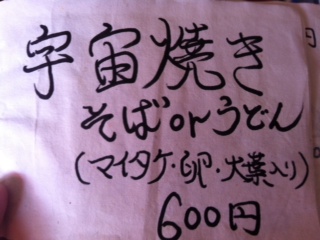 宇宙焼き
そばorうどん
(マイタケ・卵・大葉入り)
600円